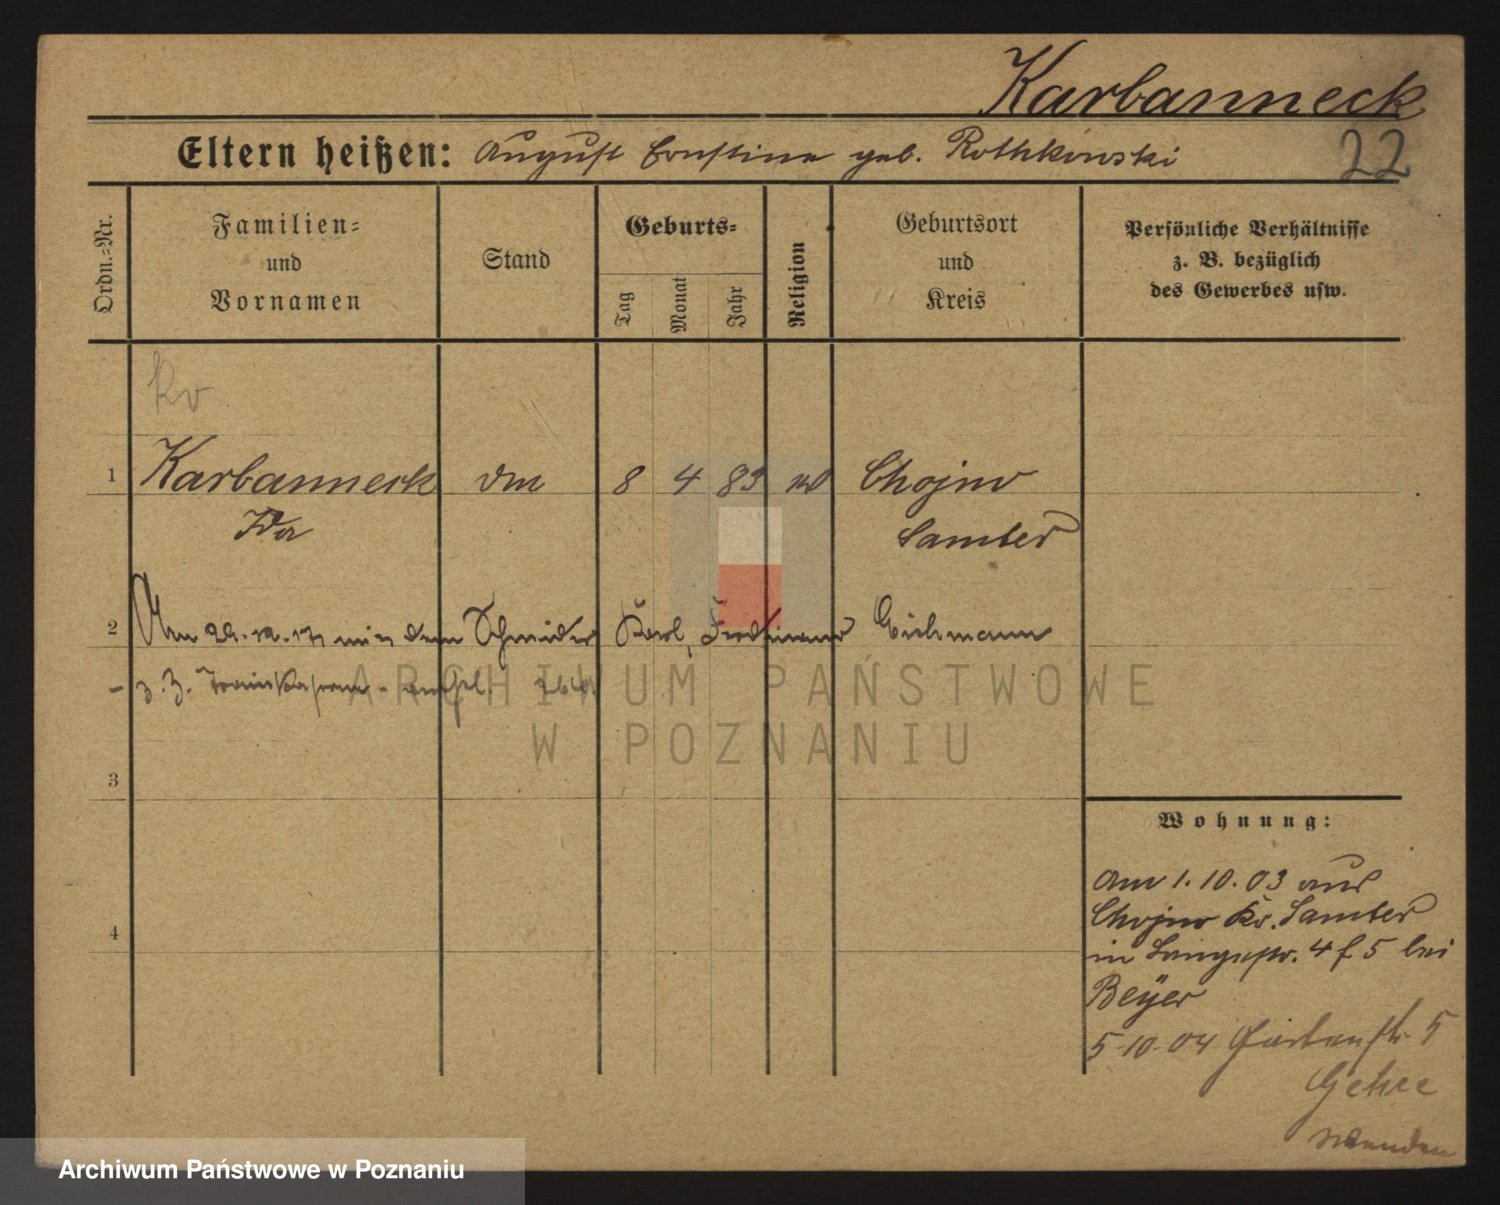 Karbanneck
Eltern heißen: August Ernstine geb. Rothkowski
22
Ordn.=Nr.
Familien=
und
Vornamen
Stand
Geburts=
Tag
Monat
Jahr
Religion
Geburtsort
und
Kreis
Persönliche Verhältnisse
z. B. bezüglich
des Gewerbes usw.
1 Karbanneck 8 4 83 Chojno
Ida Samter
2 Am mit dem Schneider Karl, Ferdinand Eichmann
z. Z.
ARCHIWUM PAŃSTWOWE
W POZNANIU
3
Wohnung:
Am 1.10.03 aus
Chojno Kr. Samter
4
in 4 f 5 bei
Beyer
5-10-04 Gartenstr. 5
Gehre
wenden
Archiwum Państwowe w Poznaniu